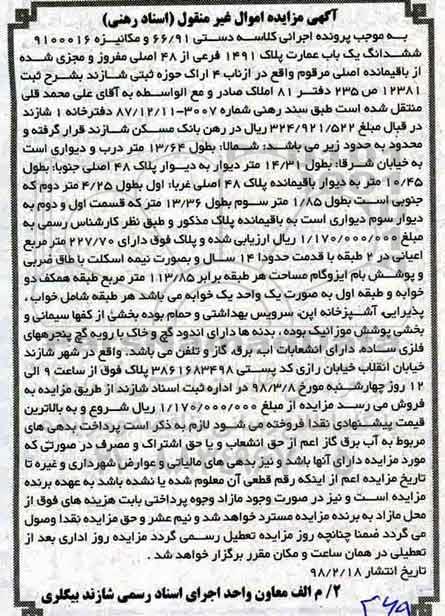 آگهی مزایده اموال غیر منقول (اسناد رهنی)
به موجب پرونده اجرائی کلاسه دستی ۶۶/۹۱ و مکانیزه ۹۱۰۰۰۱۶
ششدانگ یک باب عمارت پلاک ۱۴۹۱ فرعی از ۴۸ اصلی مفروز و مجزی شده
از باقیمانده اصلی مرقوم واقع در ازناب ۴ اراک حوزه ثبتی شازند بشرح ثبت
۱۲۳۸۱ ص ۲۳۵ دفتر ۸۱ املاک صادر و مع الواسطه به آقای علی محمد قلی
منتقل شده است طبق سند رهنی شماره ۳۰۰۷-۸۷/۱۲/۱۱ دفترخانه ۱ شازند
در قبال مبلغ ۳۲۴/۹۲۱/۵۲۲ ریال در رهن بانک مسکن شازند قرار گرفته و
محدود به حدود زیر می باشد: شمالا: بطول ۱۳/۶۴ متر درب و دیواری است
به خیابان شرقا: بطول ۱۴/۳۱ متر دیوار به دیوار پلاک ۴۸ اصلی جنوبا: بطول
۱۰/۴۵ متر به دیوار باقیمانده پلاک ۴۸ اصلی غربا: اول بطول ۴/۲۵ متر دوم که
جنوبی است بطول ۱/۸۵ متر سوم بطول ۱۳/۳۶ متر که قسمت اول و دوم به
دیوار سوم دیواری است به باقیمانده پلاک مذکور و طبق نظر کارشناس رسمی به
مبلغ ۱/۱۷۰/۰۰۰/۰۰۰ ریال ارزیابی شده و پلاک فوق دارای ۲۲۷/۷۰ متر مربع
اعیانی در ۲ طبقه با قدمت حدودا ۱۴ سال و بصورت نیمه اسکلت با طاق ضربی
و پوشش بام ایزوگام مساحت هر طبقه برابر ۱۱۳/۸۵ متر مربع طبقه همکف دو
خوابه و طبقه اول به صورت یک واحد یک خوابه می باشد هر طبقه شامل خواب ،
پذیرایی، آشپزخانه اپن، سرویس بهداشتی و حمام بوده بخشی از کفها سیمانی و
بخشی پوشش موزائیک بوده ، بدنه ها دارای اندود گچ و خاک با رویه گچ پنجره‌های
فلزی ساده، دارای انشعابات آب، برق، گاز و تلفن می باشد. واقع در شهر شازند
خیابان انقلاب خیابان رازی کد پستی ۳۸۶۱۶۸۳۴۹۸ پلاک فوق از ساعت ۹ الی
۱۲ روز چهارشنبه مورخ ۹۸/۳/۸ در اداره ثبت اسناد شازند از طریق مزایده به
فروش می رسد مزایده از مبلغ ۱/۱۷۰/۰۰۰/۰۰۰ ریال شروع و به بالاترین
قیمت پیشنهادی نقدا فروخته می شود لازم به ذکر است پرداخت بدهی های
مربوط به آب برق گاز اعم از حق انشعاب و یا حق اشتراک و مصرف در صورتی که
مورد مزایده دارای آنها باشد و نیز بدهی های مالیاتی و عوارض شهرداری و غیره تا
تاریخ مزایده اعم از اینکه رقم قطعی آن معلوم شده یا نشده باشد به عهده برنده
مزایده است و نیز در صورت وجود مازاد وجوه پرداختی بابت هزینه های فوق از
محل مازاد به برنده مزایده مسترد خواهد شد و نیم عشر و حق مزایده نقدا وصول
می گردد ضمنا چنانچه روز مزایده تعطیل رسمی گردد مزایده روز اداری بعد از
تعطیلی در همان ساعت و مکان مقرر برگزار خواهد شد .
تاریخ انتشار ۹۸/۲/۱۸
۲/ م الف معاون واحد اجرای اسناد رسمی شازند بیگلری